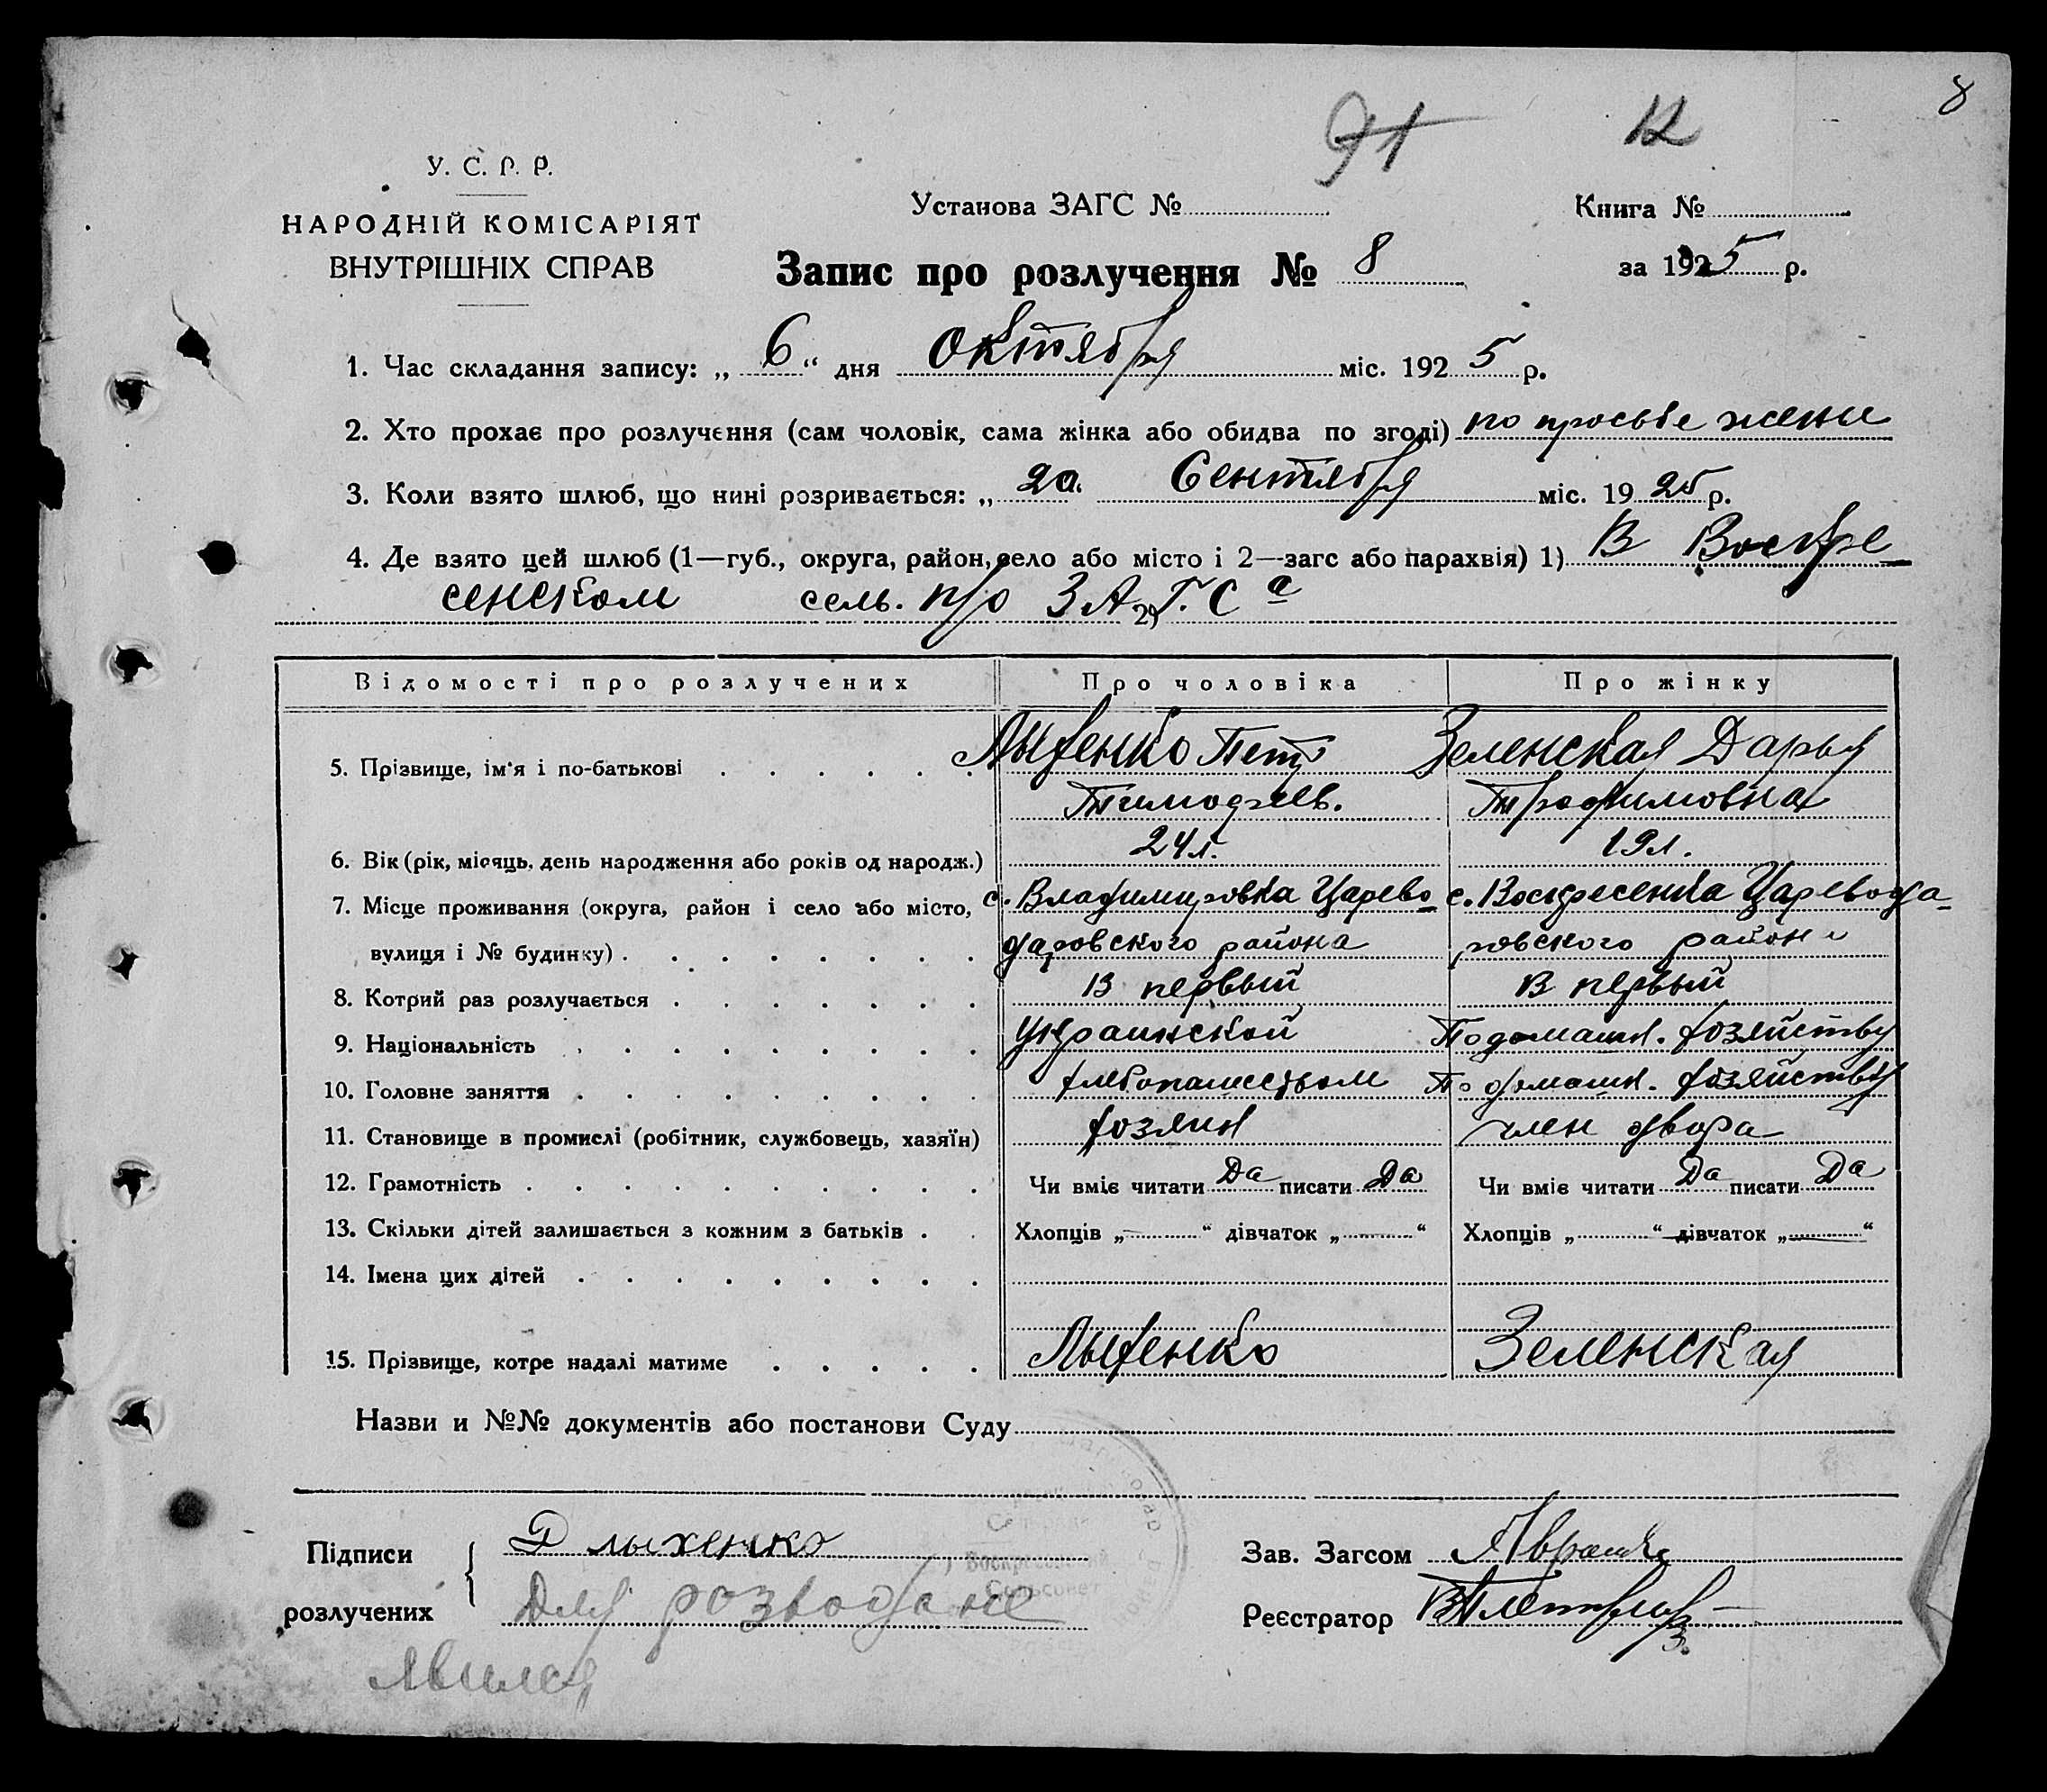 8
91
12
У. С. Р. Р.
НАРОДНІЙ КОМІСАРІЯТ
ВНУТРІШНІХ СПРАВ
Установа ЗАГС №
Книга №
Запис про розлучення № 8
за 1925 р.
1. Час складання запису: „ 6 “ дня Октября міс. 1925 р.
2. Хто прохає про розлучення (сам чоловік, сама жінка або обидва по згоді) по просьбе жены
3. Коли взято шлюб, що нині розривається: „ 20 Сентября міс. 1925 р.
4. Де взято цей шлюб (1—губ., округа, район, село або місто і 2—загс або парахвія) 1) В Воскре
сенском сель. п/о ЗАГСа 2)
Відомості про розлучених Про чоловіка Про жінку
5. Прізвище, ім'я і по-батькові Лыхенко Петр Зеленская Дарья
Тимофеев. Трофимовна
6. Вік (рік, місяць, день народження або років од народж.) 24 л. 19 л.
7. Місце проживання (округа, район і село або місто, с. Владимировка Царево с. Воскресенка Царевода-
вулиця і № будинку) даровского района ровского района
8. Котрий раз розлучається В первый В первый
9. Національність Украинской По домашн. хозяйству
10. Головне заняття хлебопашеством По домашн. хозяйству
11. Становище в промислі (робітник, службовець, хазяїн) хозяин член двора
12. Грамотність Чи вміє читати Да писати Да Чи вміє читати Да писати Да
13. Скільки дітей залишається з кожним з батьків Хлопців „ “ дівчаток „ “ Хлопців „ “ дівчаток „ “
14. Імена цих дітей
15. Прізвище, котре надалі матиме Лыхенко Зеленская
Назви и №№ документів або постанови Суду
Підписи лыхенко Зав. Загсом
розлучених Для розвода не Реєстратор
явился